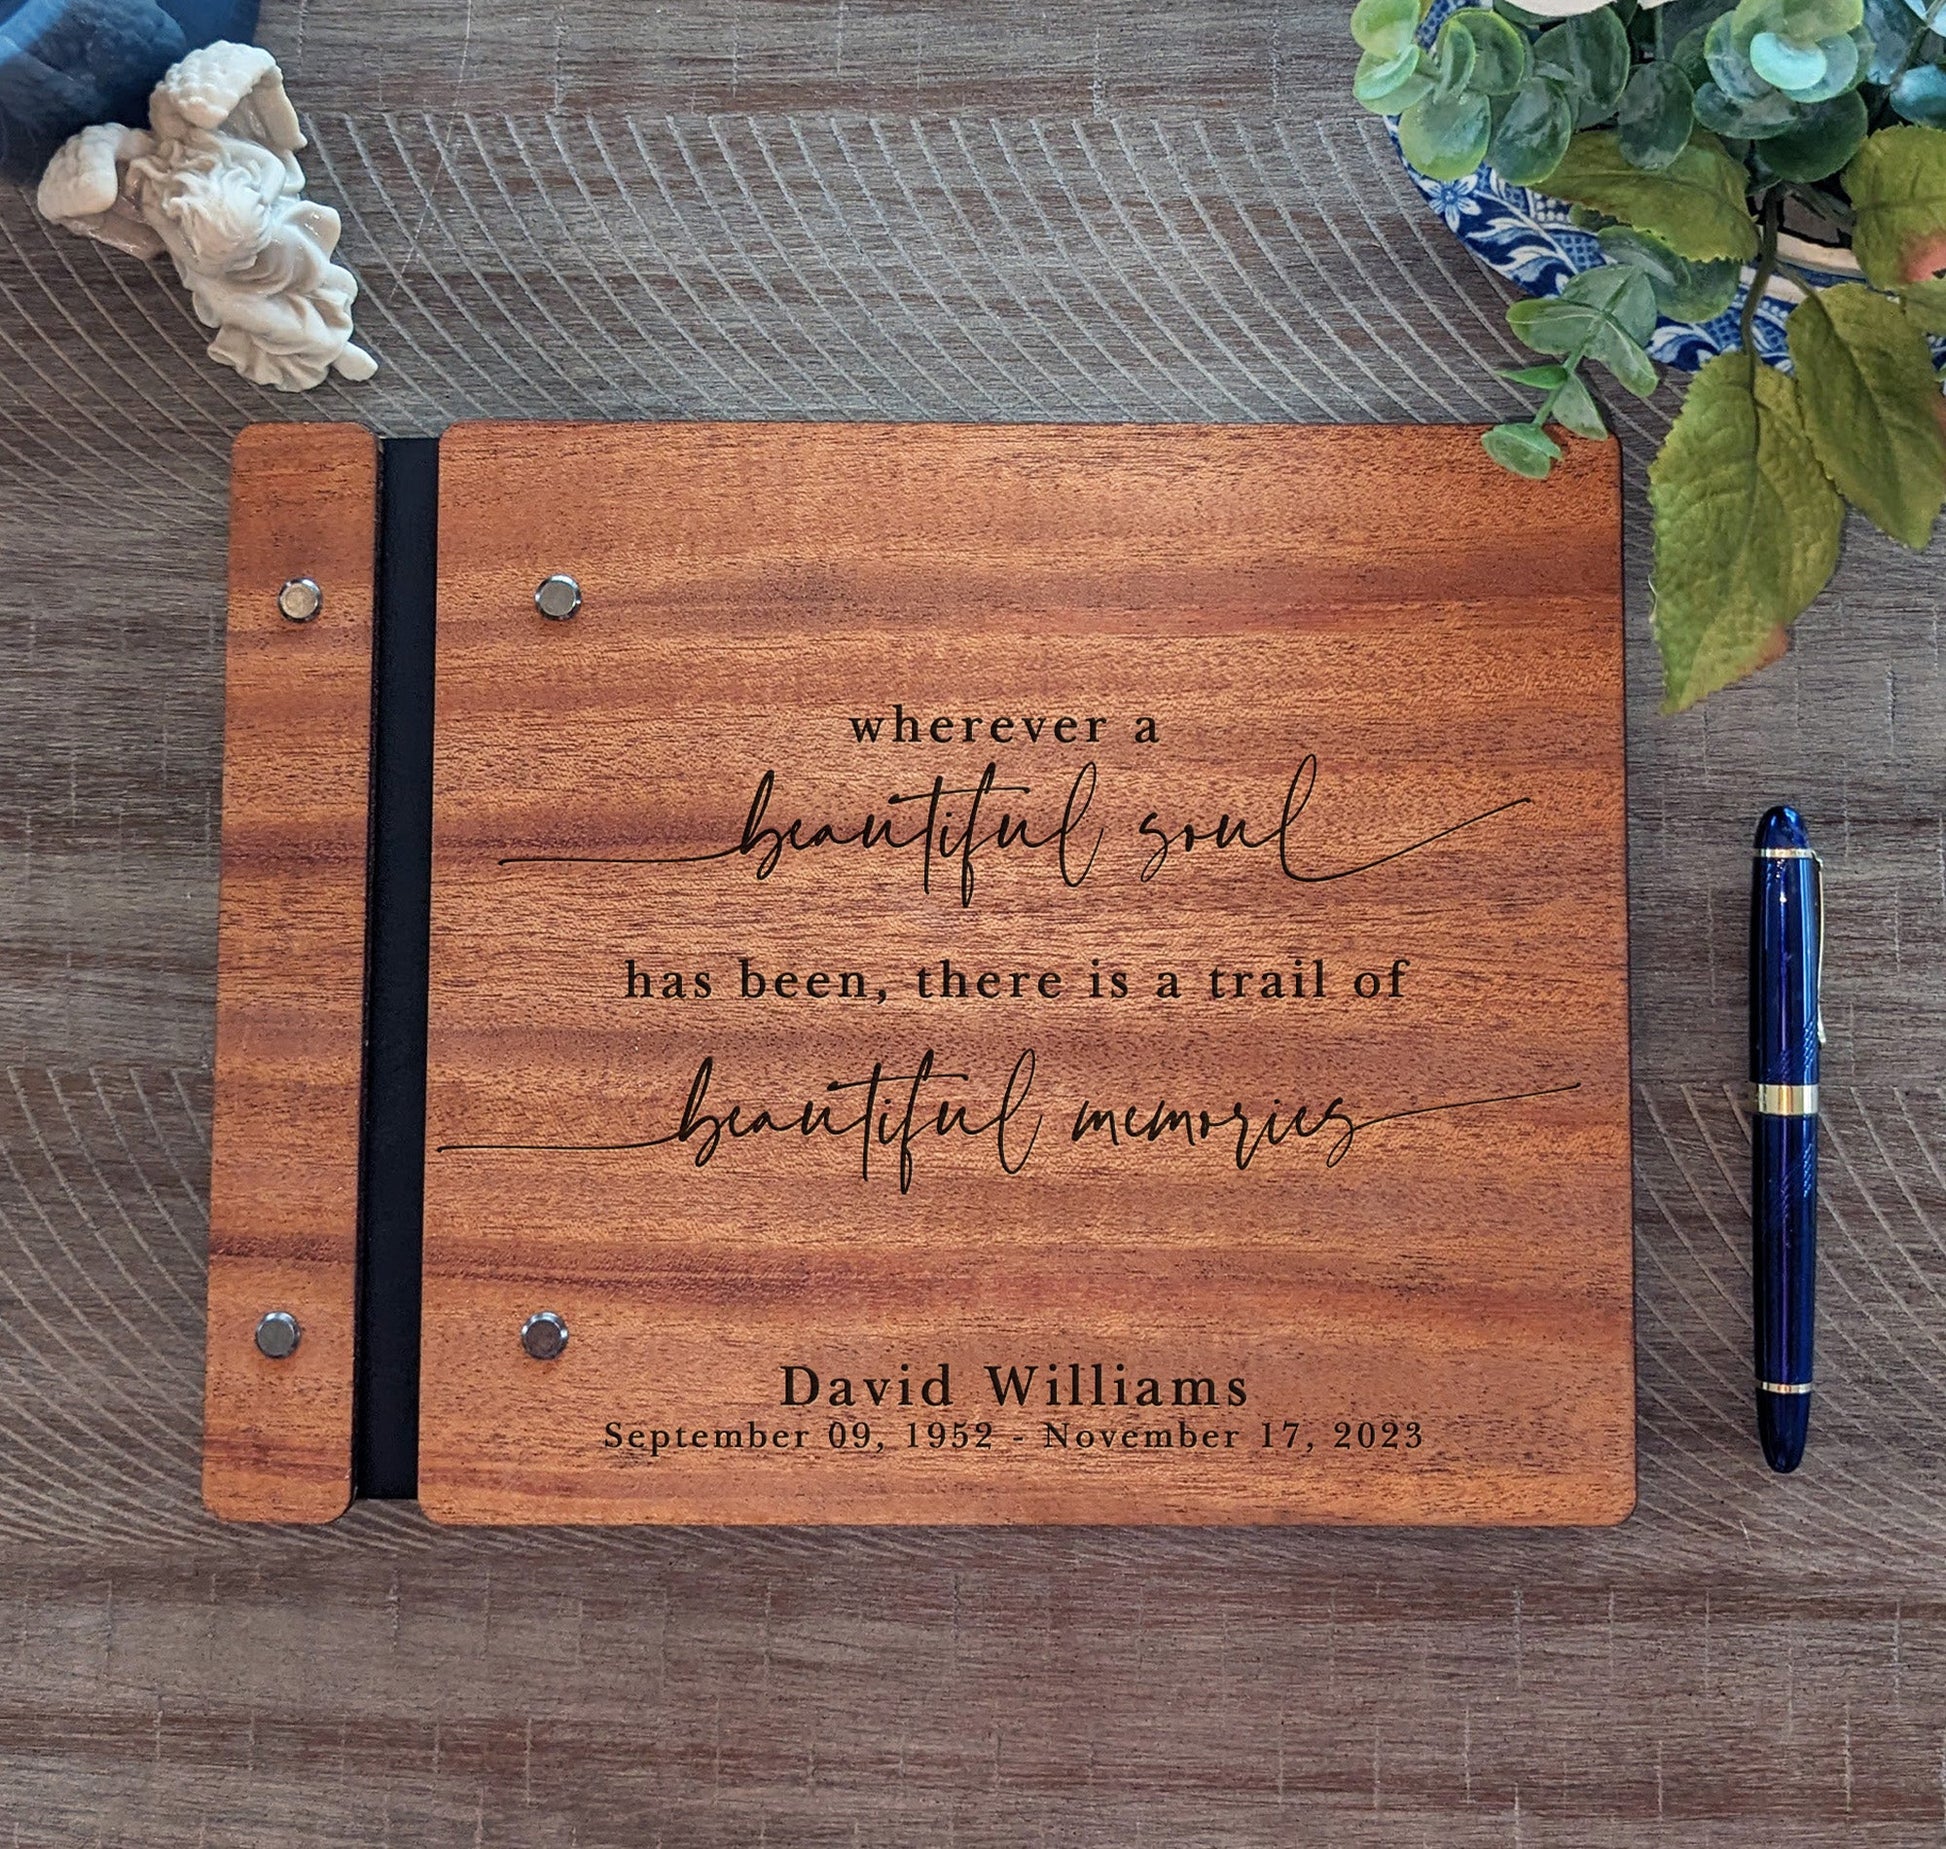 wherever a
beautiful soul
has been, there is a trail of
beautiful memories
David Williams
September 09, 1952 - November 17, 2023